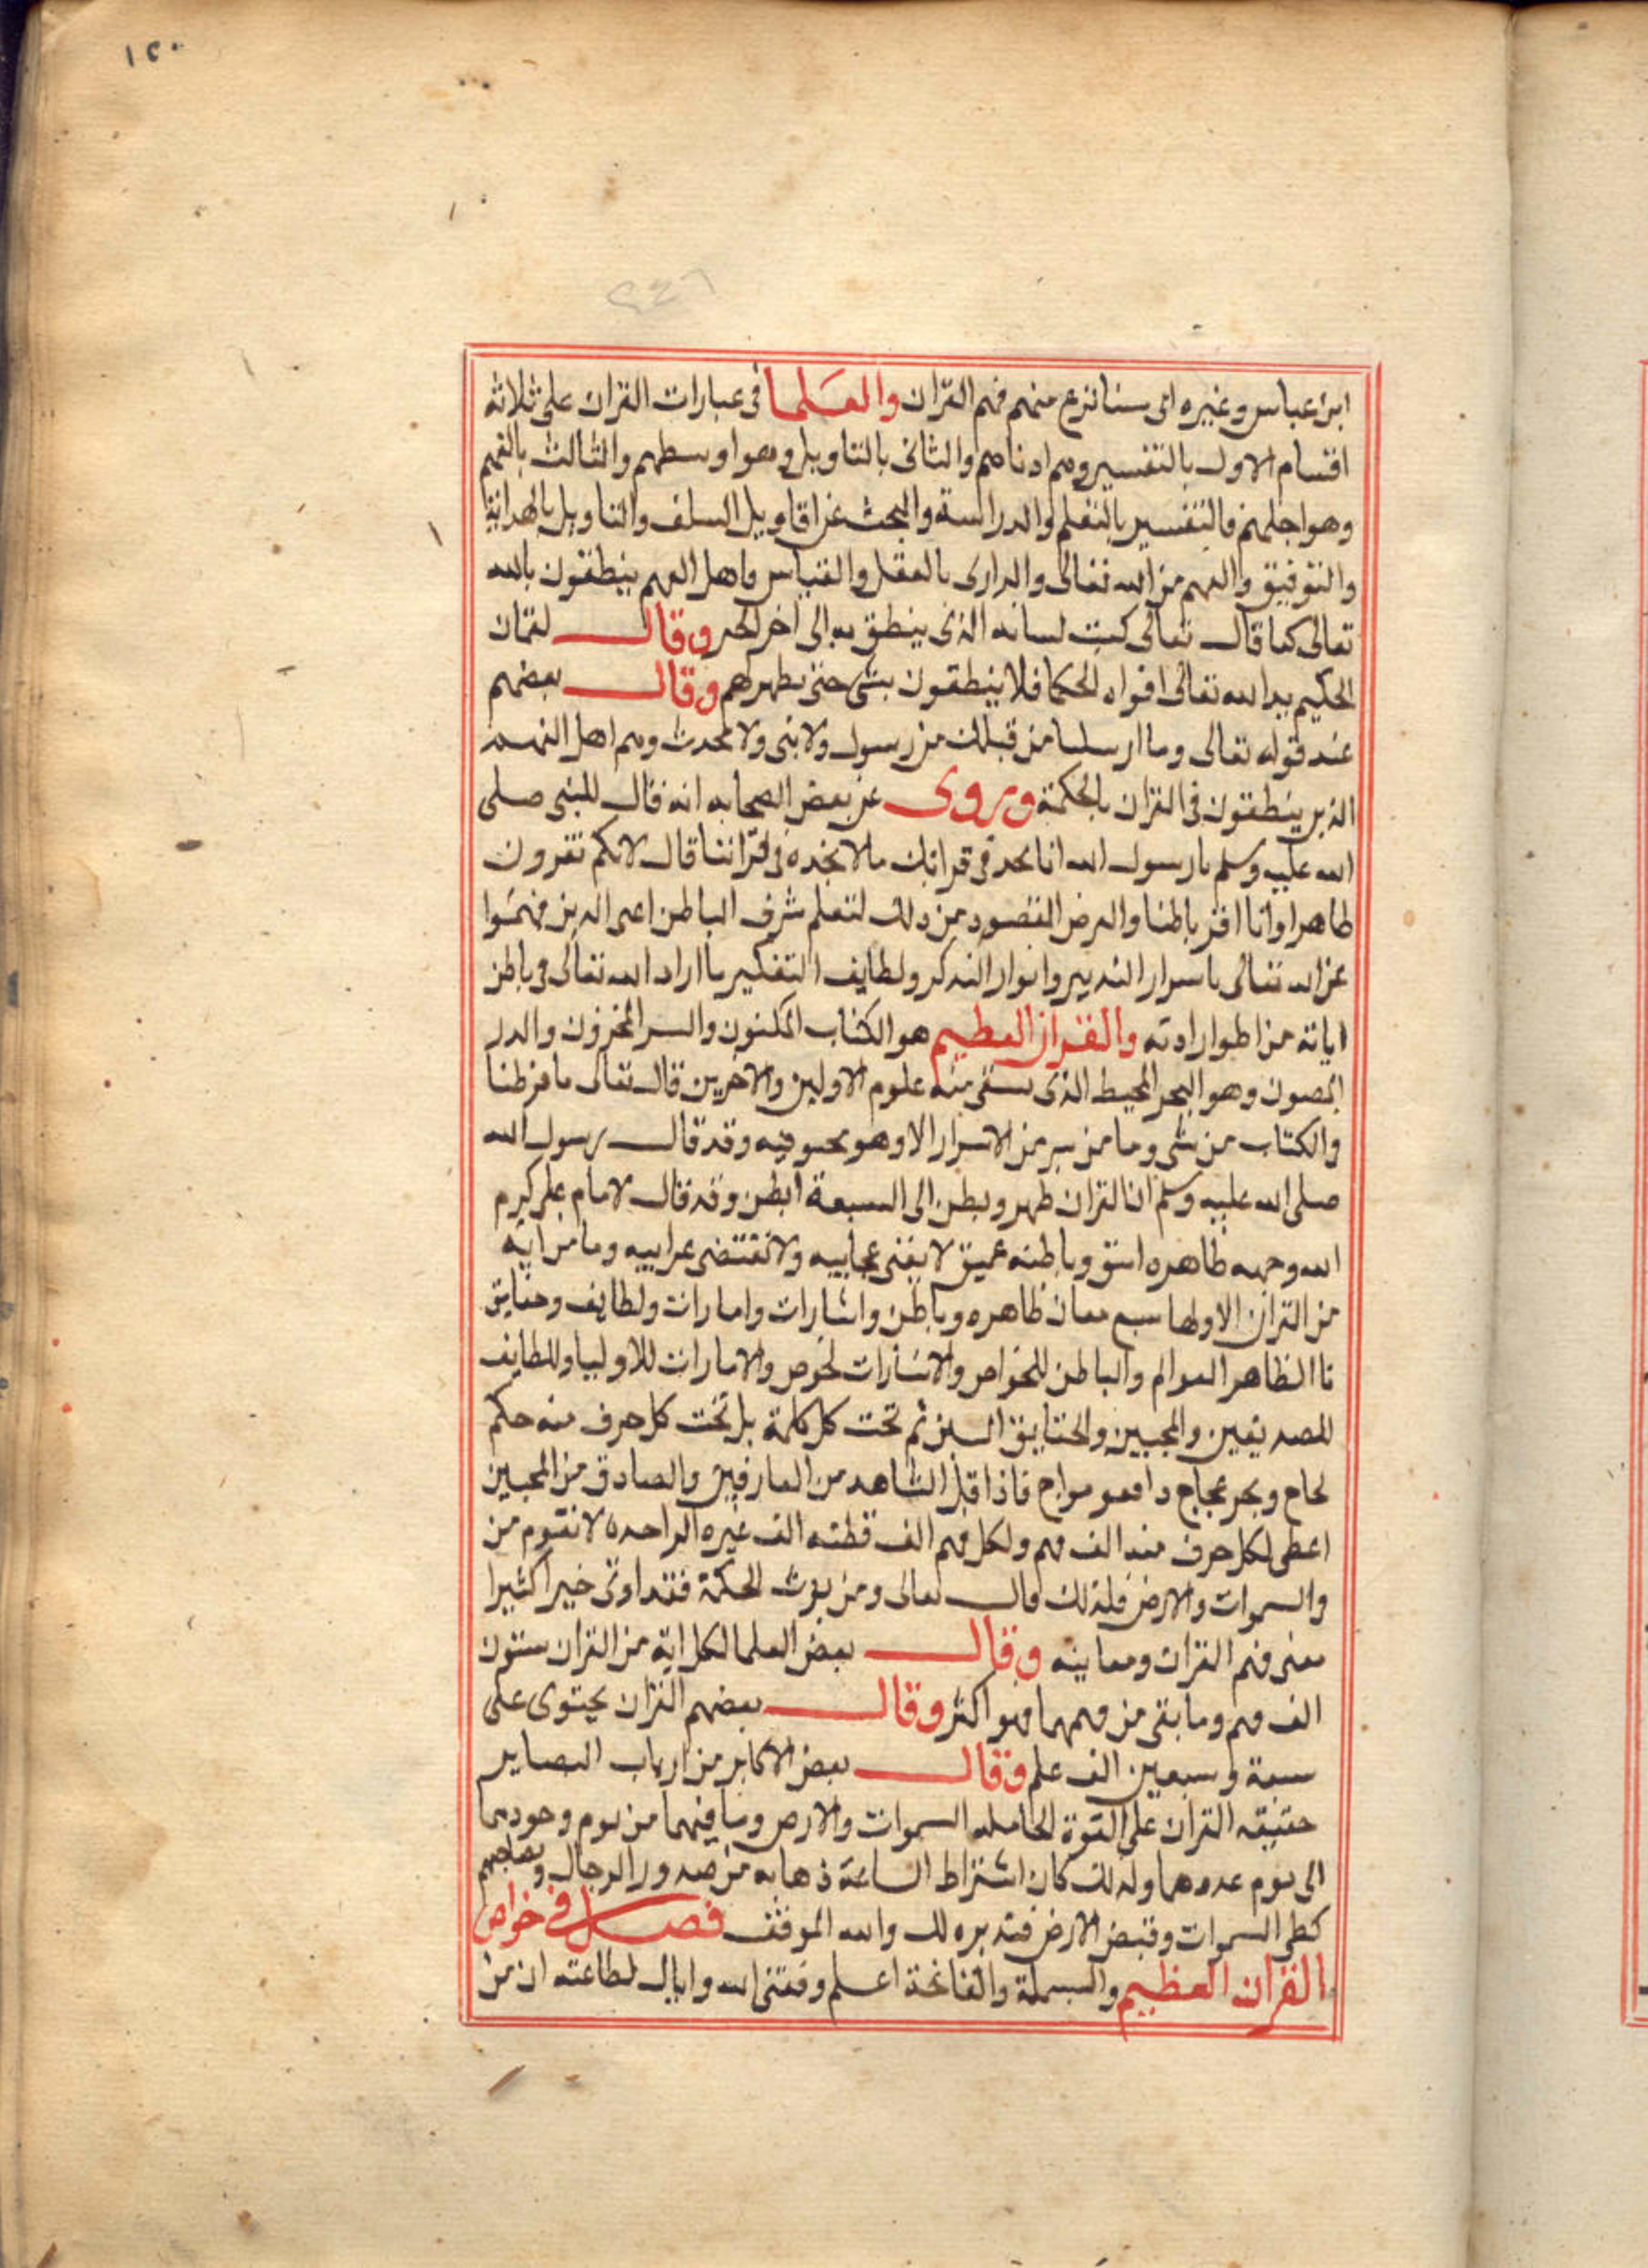 ١٢٠
٢٤٦
ابن عباس وغيره اى سننزع منهم فهم القران والعلما فى عبارات القران على ثلاثة
اقسام الاول بالتفسير وهم ادناهم والثانى بالتاويل وهو اوسطهم والثالث بالفهم
وهو اجلهم فالتفسير بالتعلم والدراسة والبحث عن اقاويل السلف والتاويل بالهداية
والتوفيق والفهم من الله تعالى والدارى بالعقل والقياس واهل الفهم ينطقون بالله
تعالى كما قال تعالى كنت لسانه الذى ينطق به الى اخر الخبر وقال لقمان
الحكيم يد الله تعالى افواه الحكما فلا ينطقون بشى حتى يظهر لهم وقال بعضهم
عند قوله تعالى وما ارسلنا من قبلك من رسول ولا نبى ولا محدث وهم اهل الفهم
الذين ينطقون فى القران بالحكمة وروى عن بعض الصحابه انه قال للنبى صلى
الله عليه وسلم يا رسول الله انا نجد فى قراتك ما لا نجده فى قرانتنا قال لانكم تقرون
ظاهرا وانا اقر باطنا والغرض المقصود من ذلك لتعلم شرف الباطن اعنى الذين فهموا
عن الله تعالى باسرار التدبير وانوار التذكر ولطايف التفكير ما اراد الله تعالى فى باطن
اياته من اطوار ارادته والقران العظيم هو الكتاب المكنون والسر المخزون والدر
المصون وهو البحر المحيط الذى يستقى منه علوم الاولين والاخرين قال تعالى ما فرطنا
والكتاب من شى وما من سر من الاسرار الا وهو محسو فيه وقد قال رسول الله
صلى الله عليه وسلم ان القران ظهر وبطن الى السبعة ابطن وقد قال الامام على كرم
الله وجهه ظاهره انيق وباطنه عميق لا يفنى عجايبه ولا تنقضى غرايبه وما من اية
من القران الا ولها سبع معان ظاهره وباطن واشارات وامارات ولطايف وحقايق
فا الظاهر العوام والباطن للخواص والاشارات لخوص والامارات للاوليا واللطايف
للصديقين والمحبين والحقايق النبيين ثم تحت كل كلمة بل تحت كل حرف منه حكم
لحاح وبحر عجاج دافعو مواج فاذا اقبل الشاهد من العارفين والصادق من المحبين
اعطى لكل حرف منه الف فهم ولكل فهم الف فطنه الف عبره الواحده لا تقوم من
والسموات والارض فلذلك قال تعالى ومن يوت الحكمة فقد اوتى خيرا كثيرا
معنى فهم القران ومعانيه وقال بعض العلما لكل اية من القران ستون
الف فهم وما بقى من فهمها فهو اكثر وقال بعضهم القران يحتوى على
سبعة وسبعين الف علم وقال بعض الاكابر من ارباب البصاير
حقيقه القران على القوة الحامله السموات والارض وما فيهما من يوم وجودهما
الى يوم عدمهما ولذلك كان اشتراط الساعة ذهابه من صدور الرجال ومصاحفهم
كطى السموات وقبض الارض فتدبر ذلك والله الموفق فصل فى خواص
القران العظيم والبسملة والفاتحة اعلم وفقنى الله واياك لطاعته ان من